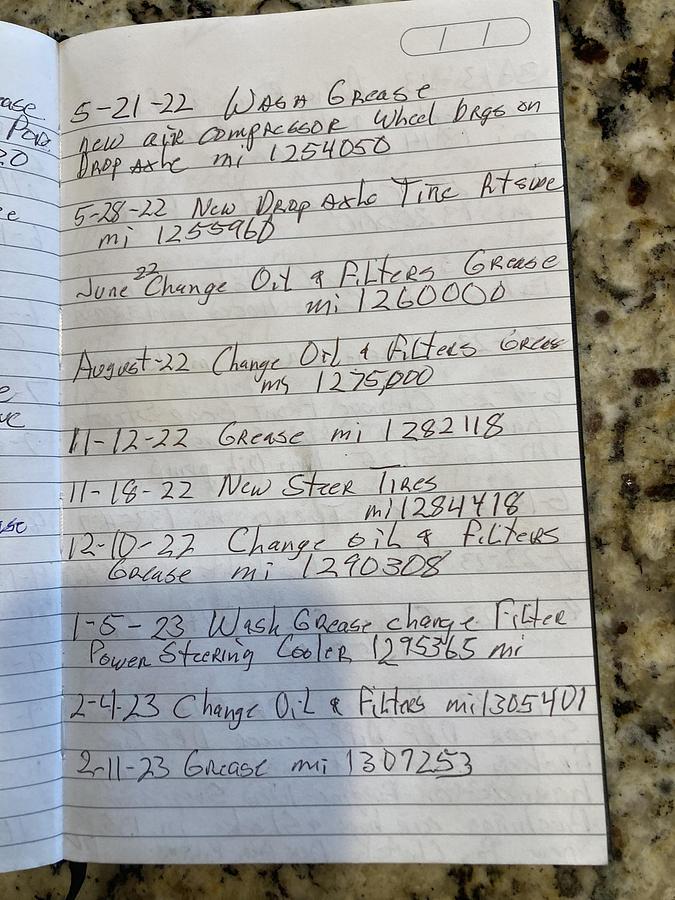 ase
5-21-22 Wash Grease
new air compressor wheel brgs on
Drop Axle mi 1254050
5-28-22 New Drop Axle Tire Rt side
mi 1255960
June 22 Change Oil & Filters Grease
mi 1260000
August-22 Change Oil & Filters Greas
mi 1275,000
11-12-22 Grease mi 1282118
11-18-22 New Steer Tires
mi 1284418
12-10-22 Change oil & Filters
Grease mi 1290308
1-5-23 Wash Grease change Filter
Power Steering Cooler 1295365 mi
2-4-23 Change Oil & Filters mi 1305401
2-11-23 Grease mi 1307253